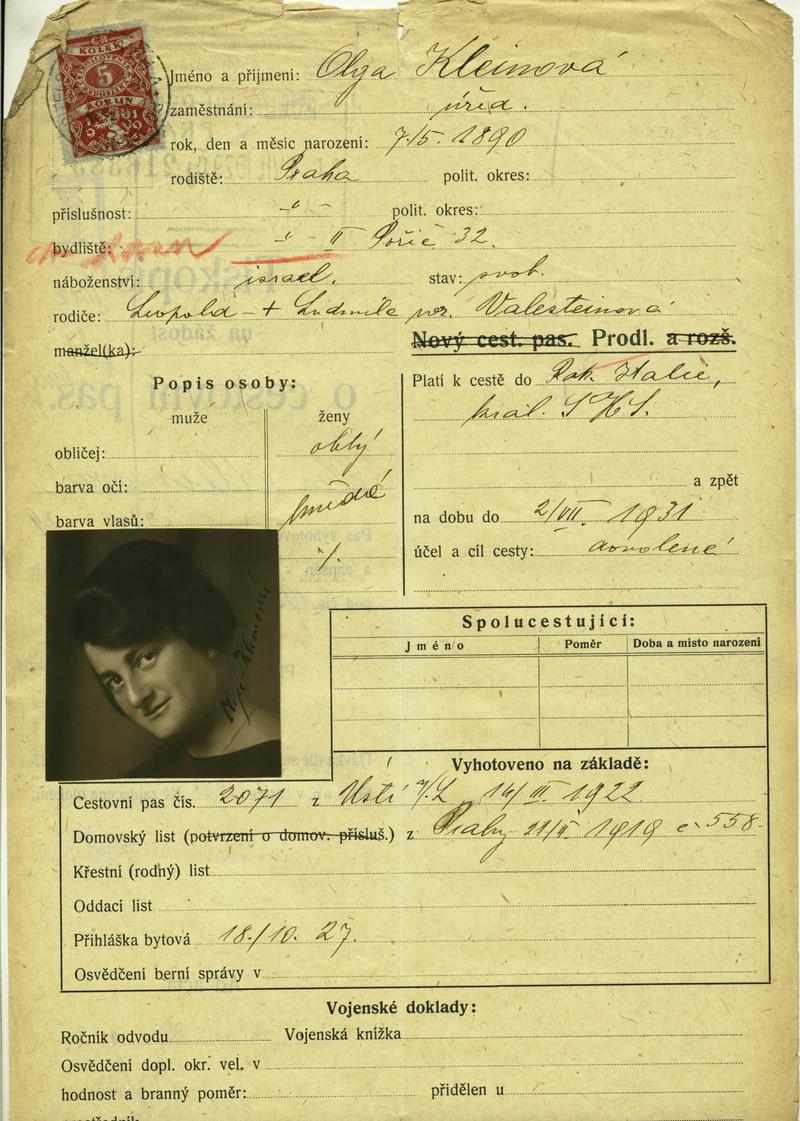 KOLEK
5
KORUN
Jméno a příjmení: Olga Kleinová
zaměstnání: úřed.
rok, den a měsíc narození: 7./5. 1890
rodiště: Praha polit. okres:
příslušnost: -"- polit. okres:
bydliště: -"- II Poříč 32.
náboženství: israel. stav: svob.
rodiče: Leopold - + Ludmila roz. Valesteinová
manžel(ka): Nový cest. pas. Prodl. a rozš.
Popis osoby:
muže ženy
obličej: oblý
barva očí: hnědé
barva vlasů:
Platí k cestě do Rak. Italie,
král. SHS.
a zpět
na dobu do 2/VII. 1931
účel a cíl cesty: dovolená
Olga Kleinová
Spolucestující:
Jméno Poměr Doba a místo narození
Vyhotoveno na základě:
Cestovní pas čís. 2071 z Ústí n/L 14/III. 1922
Domovský list (potvrzení o domov. přísluš.) z Prahy 1919 č 558
Křestní (rodný) list
Oddací list
Přihláška bytová 18./10. 27.
Osvědčení berní správy v
Vojenské doklady:
Ročník odvodu Vojenská knížka
Osvědčení dopl. okr. vel. v
hodnost a branný poměr: přidělen u